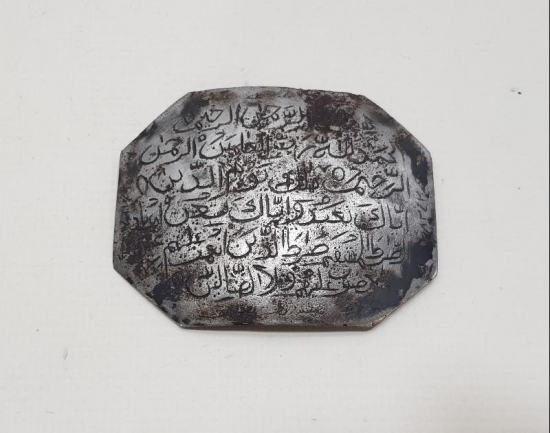 الرحمن الرحيم
الحمد لله رب العالمين الرحمن
الرحيم مالك يوم الدين
اياك نعبد واياك نستعين اهدنا
الصراط المستقيم صراط الذين انعمت
المغضوب عليهم ولا الضالين